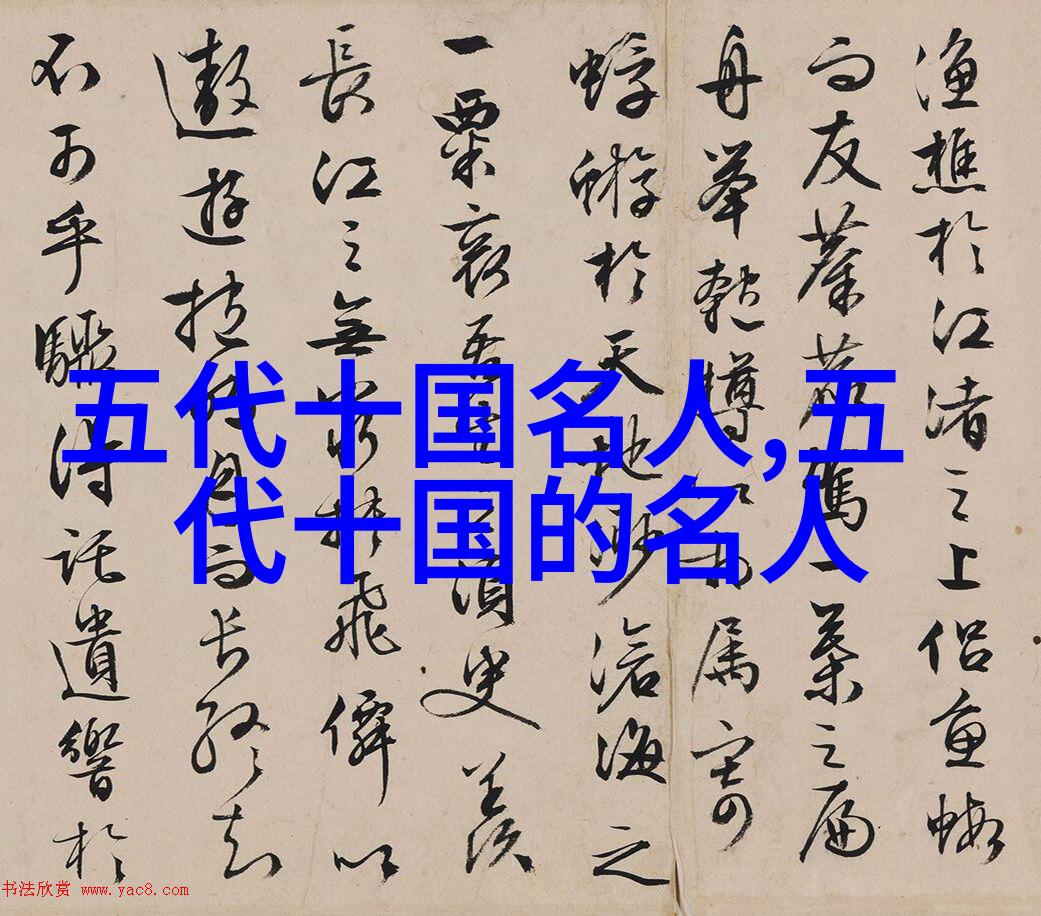 五代十国名人,五
代十国的名人
漁樵於江渚之上侶魚蝦
而友麋鹿駕一葉之扁
舟舉匏樽以相属寄
蜉蝣於天地眇滄海之
一粟哀吾生須臾羨
長江之無窮挾飛僊以
遨遊抱明月而長終知
不可乎驟得託遺響於
书法欣赏 www.yac8.com